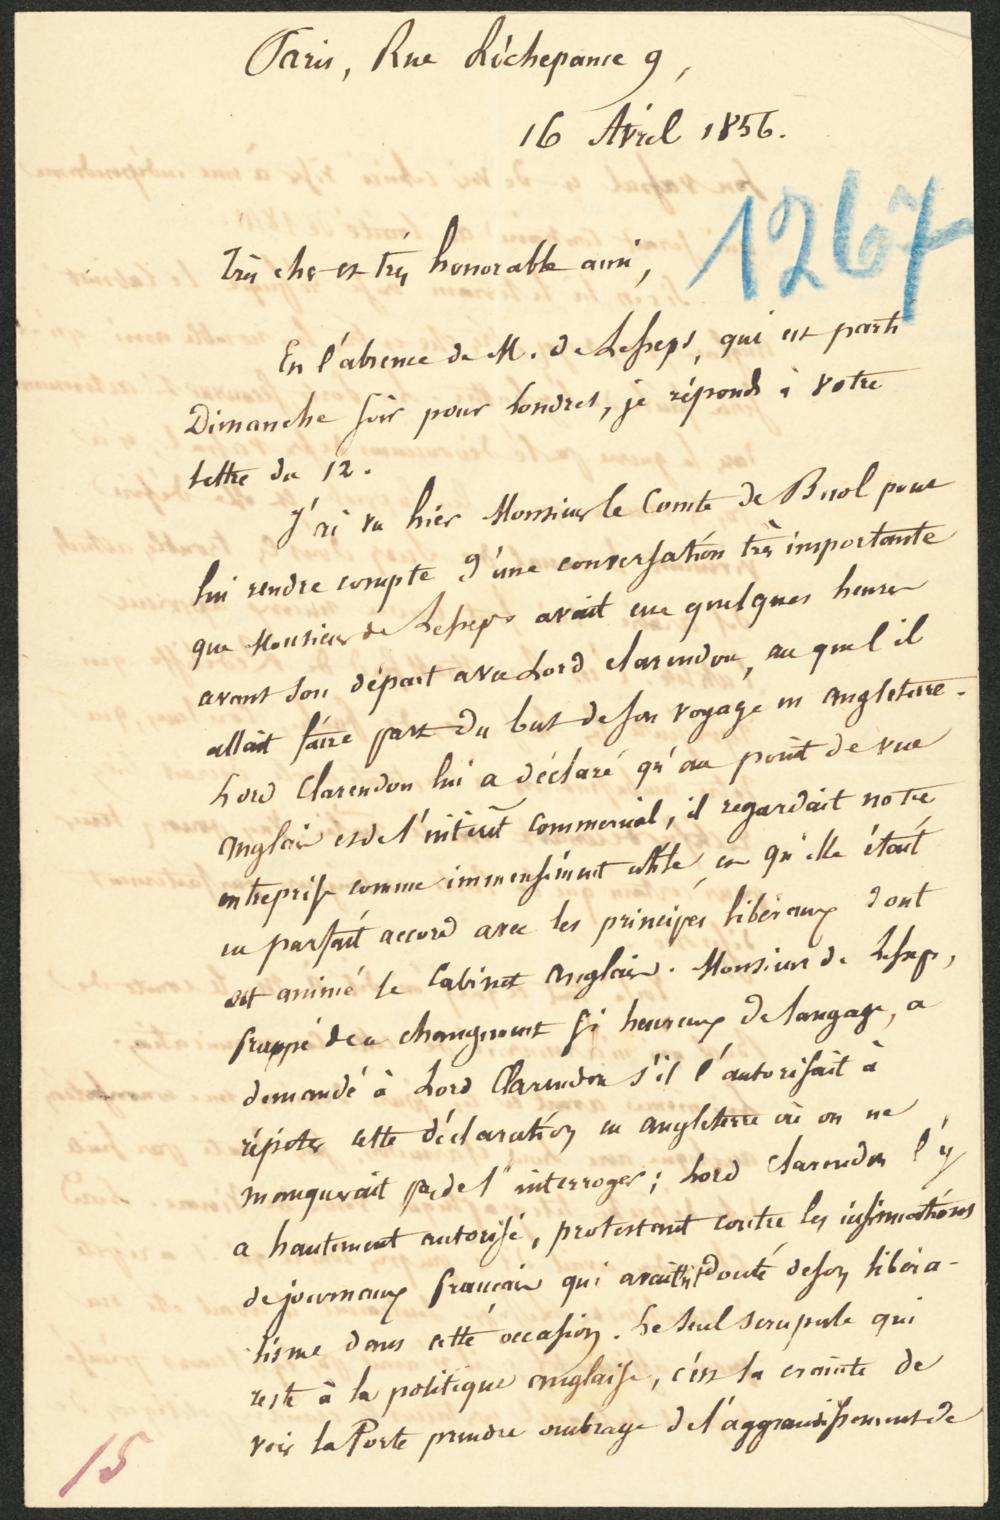 Paris, Rue Richepance 9,
16 Avril 1856.
1267
Très cher et très honorable ami,
En l'absence de M. de Lesseps, qui est parti
Dimanche soir pour Londres, je réponds à votre
lettre du 12.
J'ai vu hier Monsieur le Comte de Buol pour
lui rendre compte d'une conversation très importante
que Monsieur de Lesseps avait eue quelques heures
avant son départ avec Lord Clarendon, au quel il
allait faire part du but de son voyage en Angleterre.
Lord Clarendon lui a déclaré qu'au point de vue
Anglais et de l'intérêt commercial, il regardait notre
entreprise comme immensément utile, en qu'elle était
en parfait accord avec les principes libéraux dont
est animé le Cabinet Anglais. Monsieur de Lesseps,
frappé de ce changement si heureux de langage, a
demandé à Lord Clarendon s'il l'autorisait à
répéter cette déclaration en Angleterre où on ne
manquerait pas de l'interroger; Lord Clarendon l'y
a hautement autorisé, protestant contre les insinuations
de journaux français qui avaient douté de son libéra-
lisme dans cette occasion. Le seul scrupule qui
reste à la politique anglaise, c'est la crainte de
voir la Porte prendre ombrage de l'aggrandissement de
15